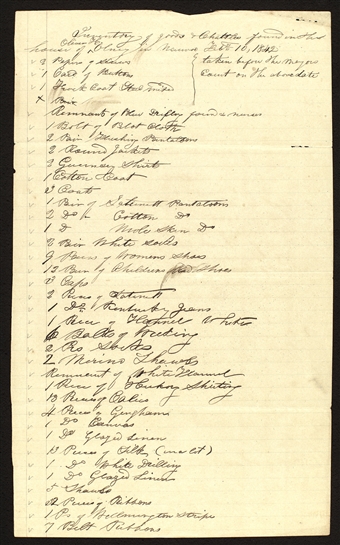 Inventory of goods & Chattles found in the
house of Henry in Nauvoo Feb 10, 1842
taken before the Mayors
Court on the above date
2 Papers of
1 Card of Buttons
1 Frock Coat
X Pair
Remnant of Blue Drilling
1 Bolt of Pilot Cloth
2 Pair Pantaloons
2 Round Jackets
2 Guernsey Shirts
1 Cotton Coat
3 Coats
1 Pair of Satinett Pantaloons
2 Do Cotton Do
1 D Mole Skin Do
2 Pair White Socks
9 Pairs of Womens Shoes
12 Pair of Childrens Shoes
3 Caps
2 Pieces of Satinett
1 Do Kentucky Jeans
1 Piece of Flannel White
6 Balls of
2 Socks
2 Merino Shawls
Remnant of White Flannel
1 Piece of Hickory Shirting
13 Pieces of Calico
4 Pieces Gingham
1 Do Canvas
1 Do Glazed Linen
13 Pieces of Silk
1 Do White Drilling
1 Do Glazed Linen
5 Shawls
12 Pieces of Ribbons
1 Ps. of Wilmington Stripe
7 Belt Ribbons